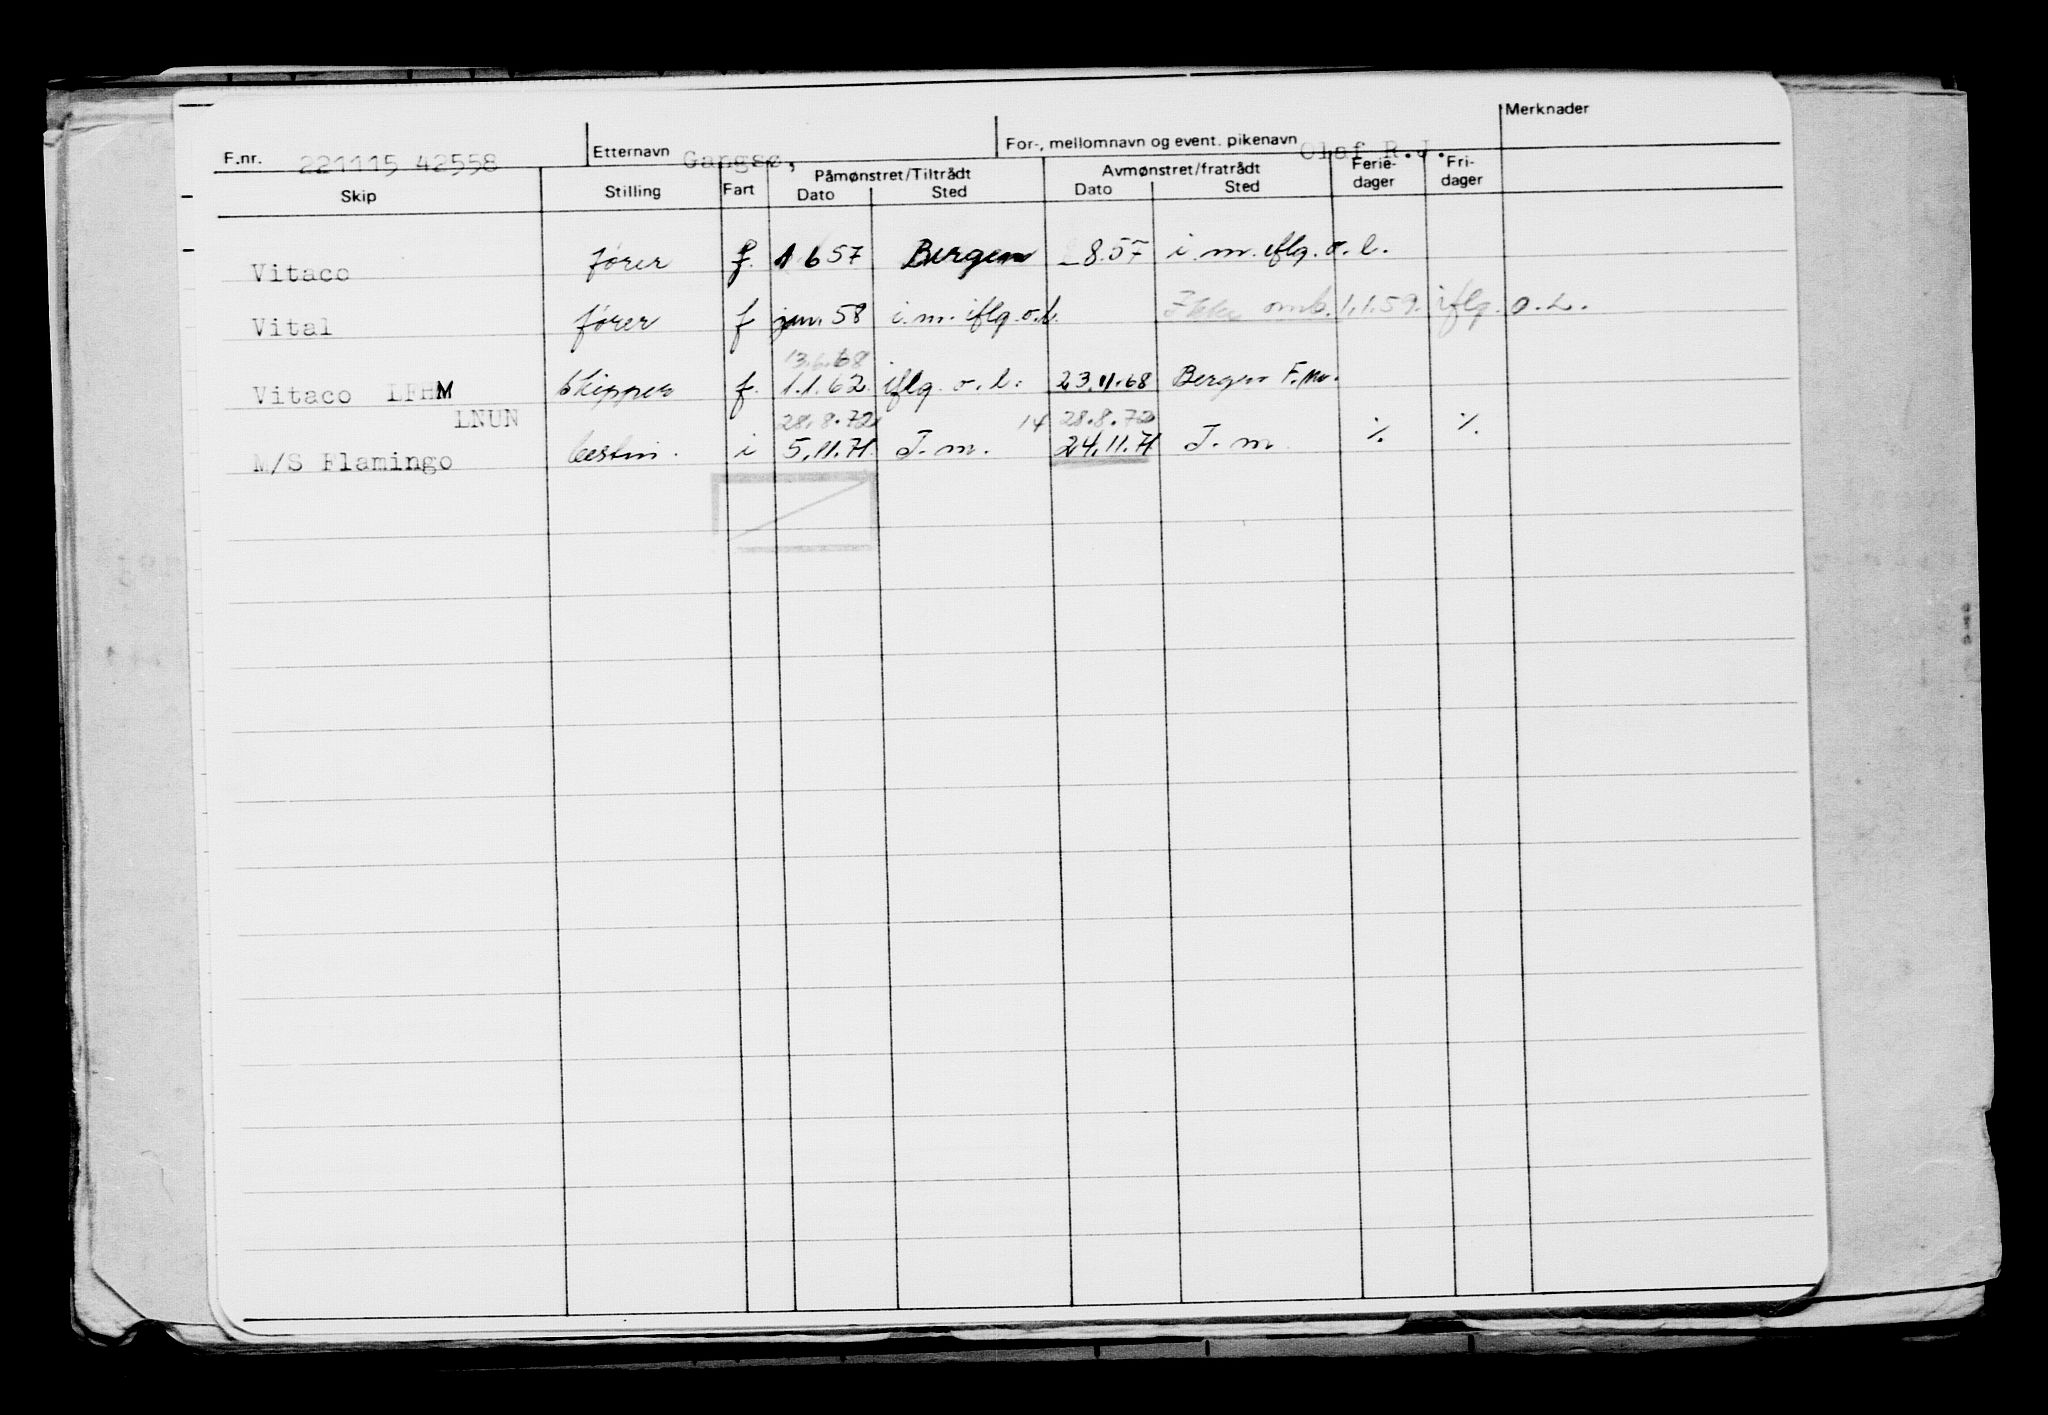 F.nr. 221115 42558 Etternavn Gangsø, For-, mellomnavn og event. pikenavn Olaf R.J. Merknader
Skip Stilling Fart Påmønstret/Tiltrådt Dato Sted Avmønstret/fratrådt Dato Sted Ferie-dager Fri-dager
Vitaco fører f. 1 6 57 Bergen _ 8.57 i.m. iflg. o.l.
Vital fører f jan. 58 i.m. iflg. o.l. Ikke omb. 1.1.59. iflg. o.l.
13.6.68
Vitaco LFHM Skipper f. 1.1.62. iflg. o.l. 23.11.68 Bergen F.m.
LNUN 28.8.72 14 28.8.72
M/S Flamingo bestm. i 5.11.71. I.m. 24.11.71 I.m. ⁒ ⁒